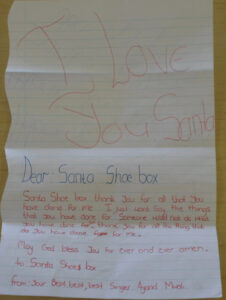 I Love
You Santa
Dear Santa Shoe box
Santa Shoe box thank you for all that you
have done for me. I just want say the things
that you have done for Someone would not do what
you have done for, thank you for all the thing that
do you have done for me.
May God bless you for ever and ever amen.
to: Santa Shoe box
from: Your Best, best, best Singer Ayand